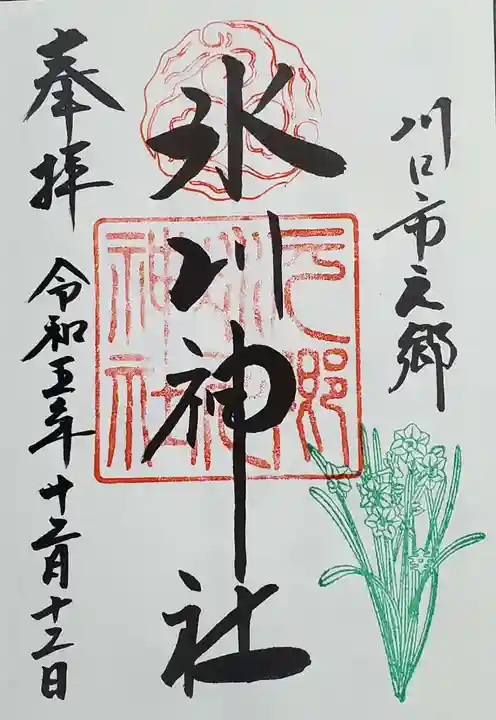 川口市元郷
氷川神社
奉拝
令和五年十二月十二日
元郷
氷川
神社